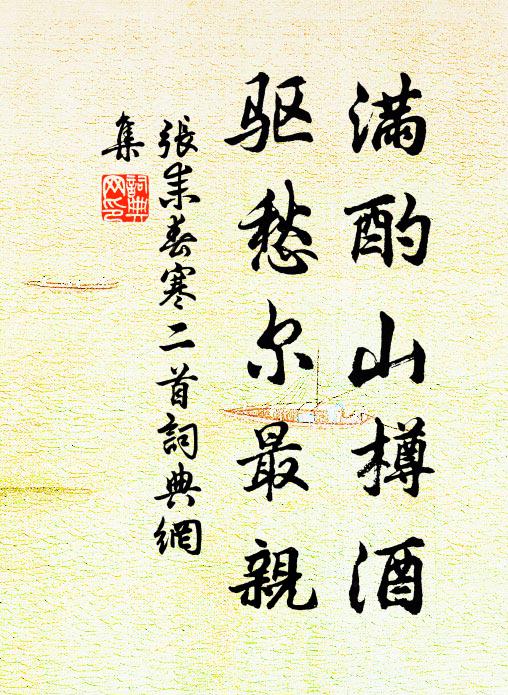 满酌山樽酒
驱愁尔最親
張耒春寒二首詞典網
集
詞典网印